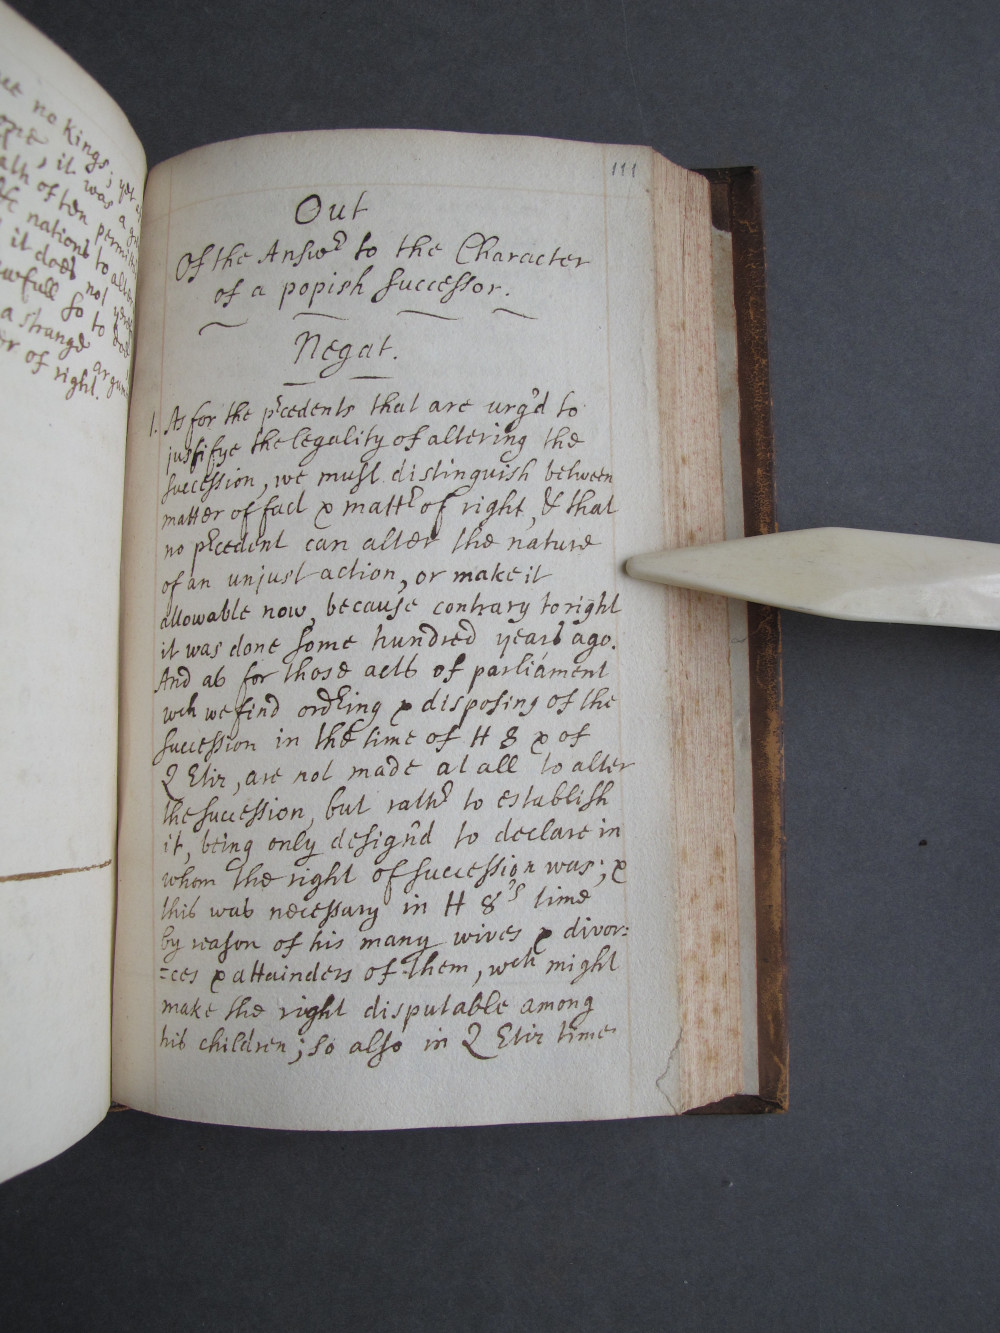 no kings; yet
it was a
of ten permit
nations to alter
it does not
full so to
a strange argum
er of right.
111
Out
Of the Answr to the Character
of a popish successor.
Negat.
1. As for the prcedents that are urg'd to
justifye the legality of altering the
succession, we must distinguish between
matter of fact & mattr of right, & that
no prcedent can alter the nature
of an unjust action, or make it
allowable now, because contrary to right
it was done some hundred years ago.
And as for those acts of parliament
wch we find ordring & disposing of the
succession in the time of H 8 & of
Q Eliz, are not made at all to alter
the succession, but rathr to establish
it, being only design'd to declare in
whom the right of succession was; &
this was necessary in H 8's time
by reason of his many wives & divor:
=ces & attainders of them, wch might
make the right disputable among
his children; so also in Q Eliz time